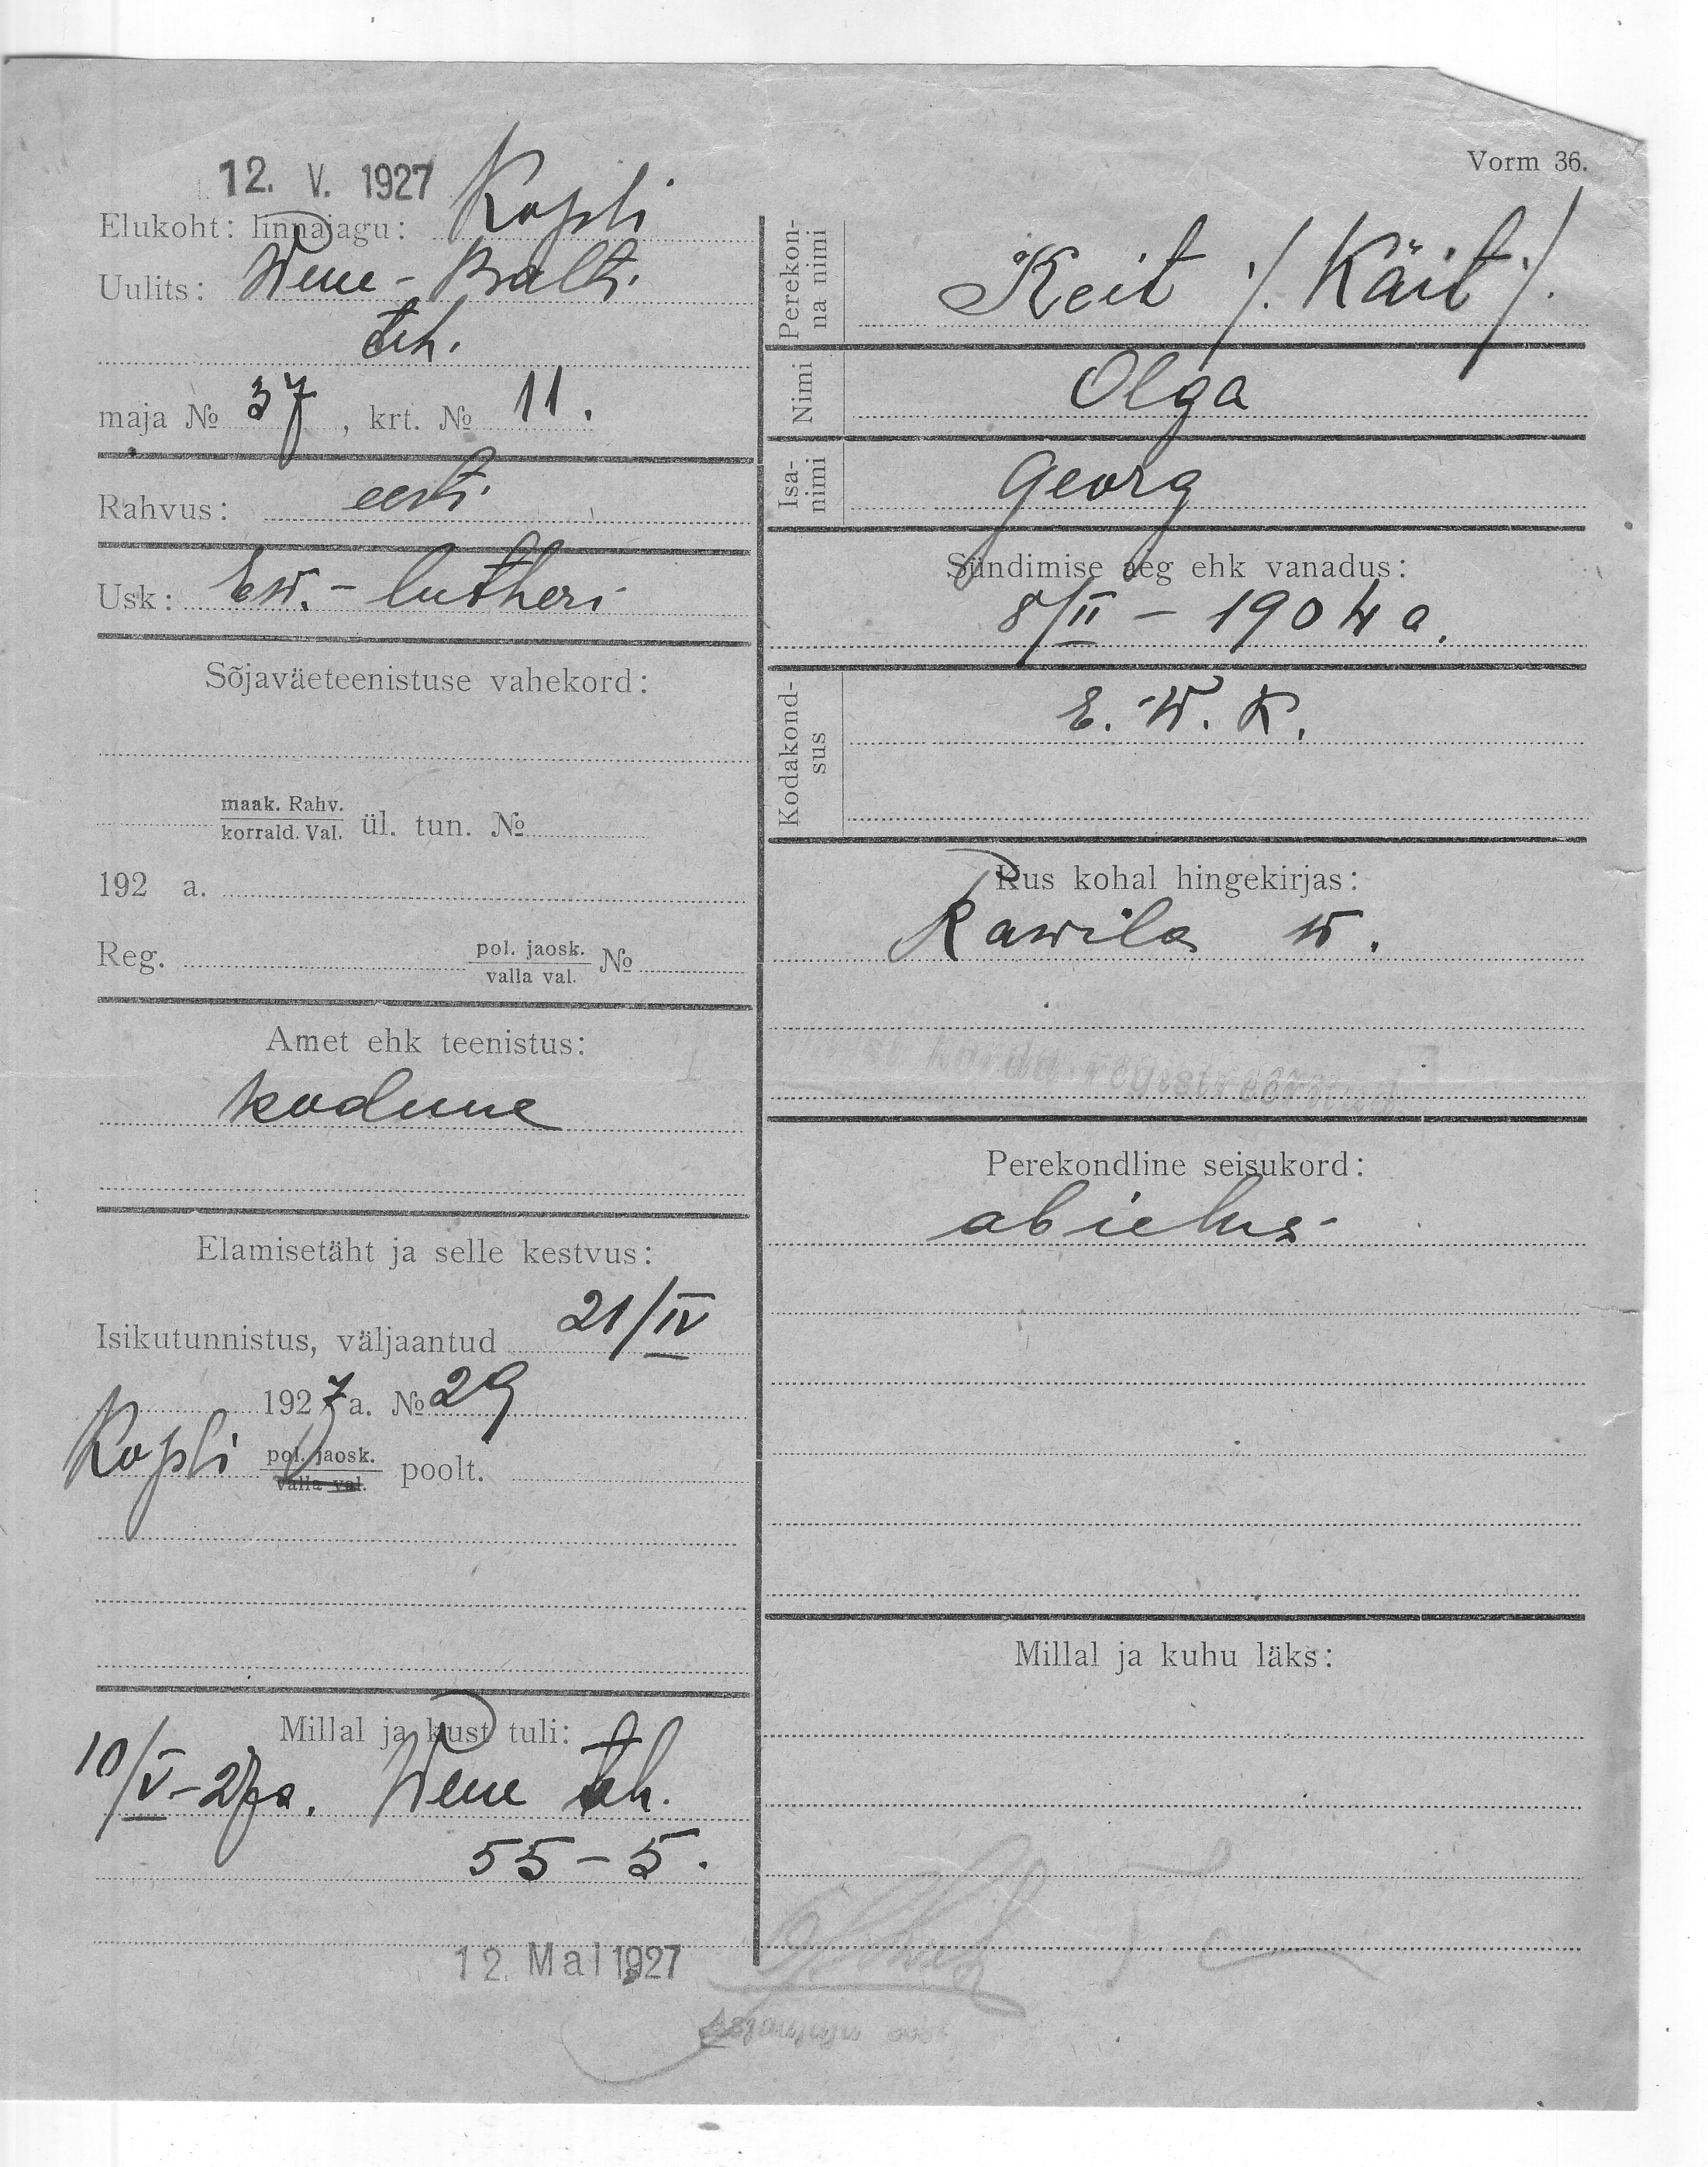 12. V. 1927
Elukoht: linnajagu: Kopli
Uulits: Wene-Balti
teh.
maja № 37, krt. № 11.
Rahvus: eesti
Usk: Ew.-lutheri
Sõjaväeteenistuse vahekord:
maak. Rahv.
korrald. Val. ül. tun. №
192 a.
Reg. pol. jaosk. №
valla val.
Amet ehk teenistus:
kodune
Elamisetäht ja selle kestvus:
Isikutunnistus, väljaantud 21/IV
1927 a. № 29
Kopli pol. jaosk. poolt.
valla val.
Millal ja kust tuli:
10/V-27a. Wene teh.
55-5.
12. Mai 1927
Vorm 36.
Perekon-
na nimi Keit /. Käit ./.
Nimi Olga
Isa-
nimi Georg
Sündimise aeg ehk vanadus:
8/II - 1904 a.
Kodakond-
sus E. W. K.
Kus kohal hingekirjas:
Rawila w.
korda registreeritud.
Perekondline seisukord:
abielus
Millal ja kuhu läks: